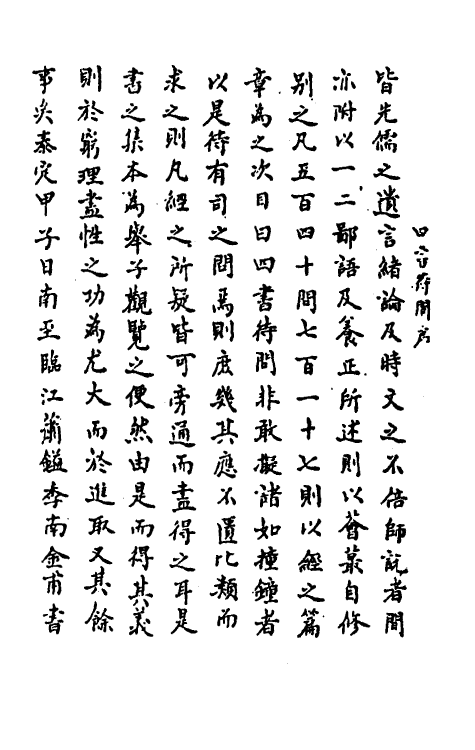 四書待問序
皆先儒之遺言緒論及時文之不倍師說者間
亦附以一二鄙語及養正所述則以薈蕞自修
別之凡五百四十問七百一十七則以經之篇
章為之次目曰四書待問非敢擬諸如撞鐘者
以是待有司之問焉則庶幾其應不匱比類而
求之則凡經之所疑皆可旁通而盡得之耳是
書之集本為舉子觀覽之便然由是而得其義
則於窮理盡性之功為尤大而於進取又其餘
事矣泰定甲子日南至臨江蕭鎰季南金甫書